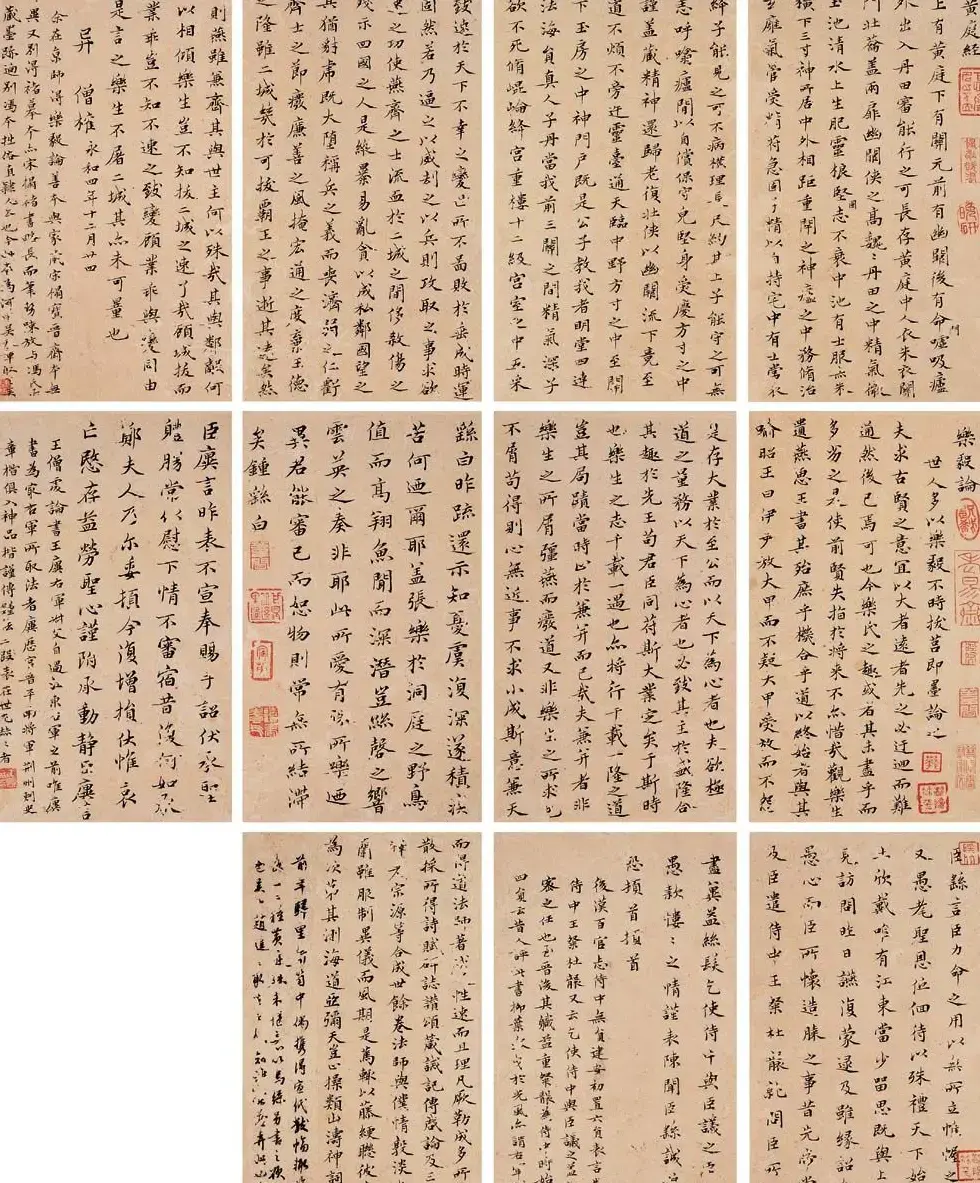 黃庭經
上有黃庭下有關元前有幽闕後有命門噓吸廬
外出入丹田審能行之可長存黃庭中人衣朱衣關
門壯籥蓋兩扉幽闕俠之高巍巍丹田之中精氣微
玉池清水上生肥靈根堅志不衰中池有士服赤朱
橫下三寸神所居中外相距重閉之神廬之中務脩治
玄膺氣管受精符急固子精以自持宅中有士常衣
絳子能見之可不病橫理長尺約其上子能守之可無
恙呼噏廬閒以自償保守完堅身受慶方寸之中
謹蓋藏精神還歸老復壯俠以幽闕流下竟至
道不煩旁迕靈臺通天臨中野方寸之中至關
下玉房之中神門戶既是公子教我者明堂四達
法海員真人子丹當我前三關之間精氣深子
欲不死脩崐崘絳宮重樓十二級宮室之中五采
致速於天下不幸之變世所不啚敗於垂成時運
固然若乃逼之以威劫之以兵則攻取之事求欲
速之功使燕齊之士流血於二城之閒侈殺傷之
殘示四國之人是縱暴易亂貪以成私鄰國望之
其猶豺虎既大墮稱兵之義而喪濟弱之仁虧
齊士之節癈廉善之風掩宏通之度棄王德
之隆雖二城幾於可拔霸王之事逝其遠矣然
則燕雖兼齊其與世主何以殊哉其與鄰敵何
以相傾樂生豈不知拔二城之速了哉顧城拔而
業乖豈不知不速之致變顧業乖與變同由
是言之樂生不屠二城其亦未可量也
异 僧權 永和四年十二月廿四
余在京師得樂毅論善本與家藏宋搨寶晉齋本無
異又別得褚摹本亦宋搨褚書略長而筆
藏墨跡迥別馮本
樂毅論
世人多以樂毅不時拔莒即墨論之
夫求古賢之意宜以大者遠者先之必迂迴而難
通然後已焉可也今樂氏之趣或者其未盡乎而
多劣之是使前賢失指於將來不亦惜哉觀樂生
遺燕惠王書其殆庶乎機合乎道以終始者與其
喻昭王曰伊尹放大甲而不疑大甲受放而不怨
是存大業於至公而以天下為心者也夫欲極
道之量務以天下為心者也必致其主於盛隆合
其趣於先王苟君臣同符斯大業定矣于斯時
也樂生之志千載一遇也亦將行千載一隆之道
豈其局蹟當時止於兼并而已哉夫兼并者非
樂生之所屑彊燕而癈道又非樂生之所求也
不屑苟得則心無近事不求小成斯意兼天
繇白昨疏還示知憂虞復深遂積疢
苦何迺爾耶蓋張樂於洞庭之野鳥
值而高翔魚聞而深潛豈絲磬之響
雲英之奏非耶此所愛有殊所樂迺
異君能審己而恕物則常無所結滯
矣鍾繇白
臣廙言昨表不宣奉賜手詔伏承聖
體勝常以慰下情不審宿昔復何如承
鄭夫人乃尔委頓今復增損伏惟哀
亡愍存益勞聖心謹附承動靜臣廙言
王僧虔論書王廙右軍叔父自過江東右軍之前唯廙
書為最右軍所取法者廙歷官晉平南將軍荊州刺史
章楷俱入神品楷謹傳鍾法二段表在世
臣繇言臣力命之用以無所立帷幄之
又愚耄聖恩低徊待以殊禮天下始
士欣戴唯有江東當少留思既與上
見訪問昨日䜩復蒙逮及雖緣詔
愚心而臣所懷造膝之事昔先帝當
及臣遣侍中王粲杜襲就問臣所
盡冀益絲髮乞使侍中與臣議之臣
愚款悽悽之情謹表陳聞臣繇誠
恐頓首頓首
後漢百官志侍中無員建安初置六員表言
侍中王粲杜襲又云乞使侍中與臣議之益
密之任也至晉後其職益重粲襲為侍中時始
四員昔人評此書柳葉
而得道法師著性速而且理凡厥勒成多所
散採所得詩賦研誌讚頌葴誡記傳啟論及三
宗源等合成世餘卷法師與僕情敦淡
蘭雖服制異儀而風期是篤輒以藤綆聯彼
為次第其渊海道亞彌天崖心操類山濤神詞